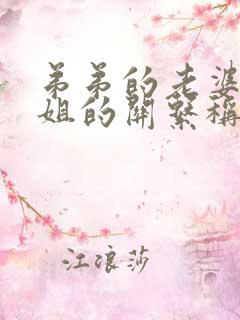 弟弟的老婆
姐的關繫稱
江浪莎